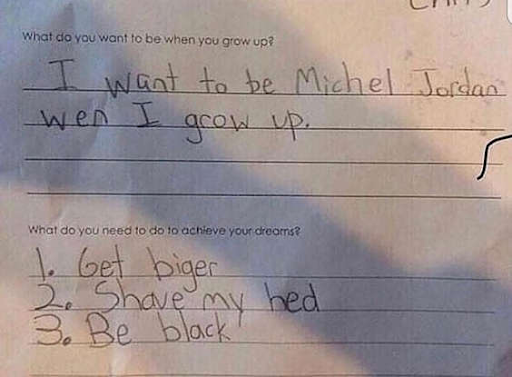 What do you want to be when you grow up?
I want to be Michel Jordan
wen I grow up.
What do you need to do to achieve your dreams?
1. Get biger
2. Shave my hed
3. Be black